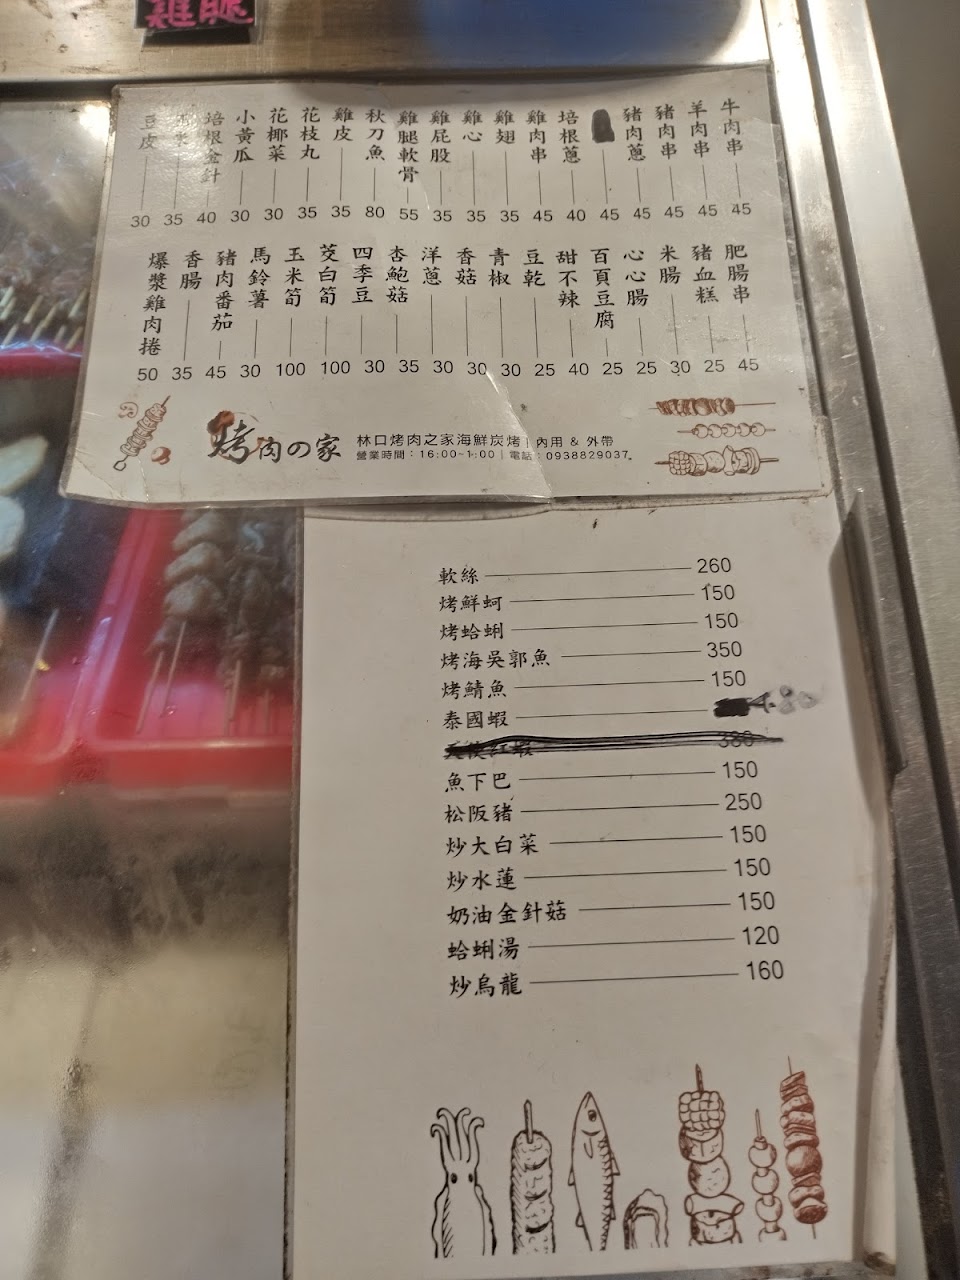 雞腿
牛肉串 45
羊肉串 45
豬肉串 45
豬肉蔥 45
45
培根蔥 40
雞肉串 45
雞翅 35
雞心 35
雞屁股 35
雞腿軟骨 55
秋刀魚 80
雞皮 35
花枝丸 35
花椰菜 30
小黃瓜 30
培根金針 40
35
豆皮 30
肥腸串 45
豬血糕 25
米腸 30
心心腸 25
百頁豆腐 25
甜不辣 40
豆乾 25
青椒 30
香菇 30
洋蔥 30
杏鮑菇 35
四季豆 30
茭白筍 100
玉米筍 100
馬鈴薯 30
豬肉番茄 45
香腸 35
爆漿雞肉捲 50
烤肉の家
林口烤肉之家海鮮炭烤 | 內用 & 外帶
營業時間：16:00~1:00 | 電話：0938829037
軟絲 260
烤鮮蚵 150
烤蛤蜊 150
烤海吳郭魚 350
烤鯖魚 150
泰國蝦 480
天使紅蝦 380
魚下巴 150
松阪豬 250
炒大白菜 150
炒水蓮 150
奶油金針菇 150
蛤蜊湯 120
炒烏龍 160